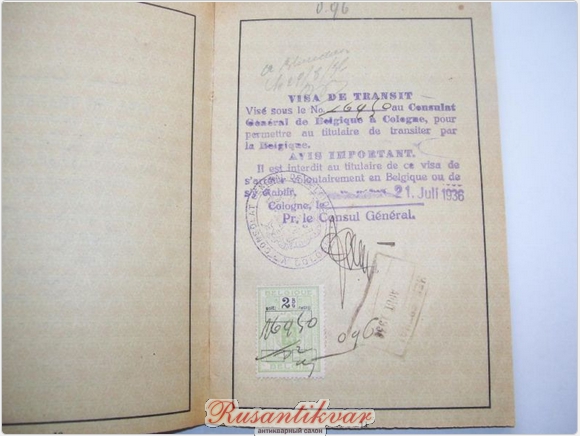 0.96
VISA DE TRANSIT
Visé sous le No 16950 au Consulat
Général de Belgique à Cologne, pour
permettre au titulaire de transiter par
la Belgique.
AVIS IMPORTANT.
Il est interdit au titulaire de ce visa de
s'arrêter volontairement en Belgique ou de
s'y établir.
Cologne, le 21. Juli 1936
Pr. le Consul Général.
CONSULAT
BELGIQUE
2
16950
0.96
BELGIË
Rusantikvar
антикварный салон